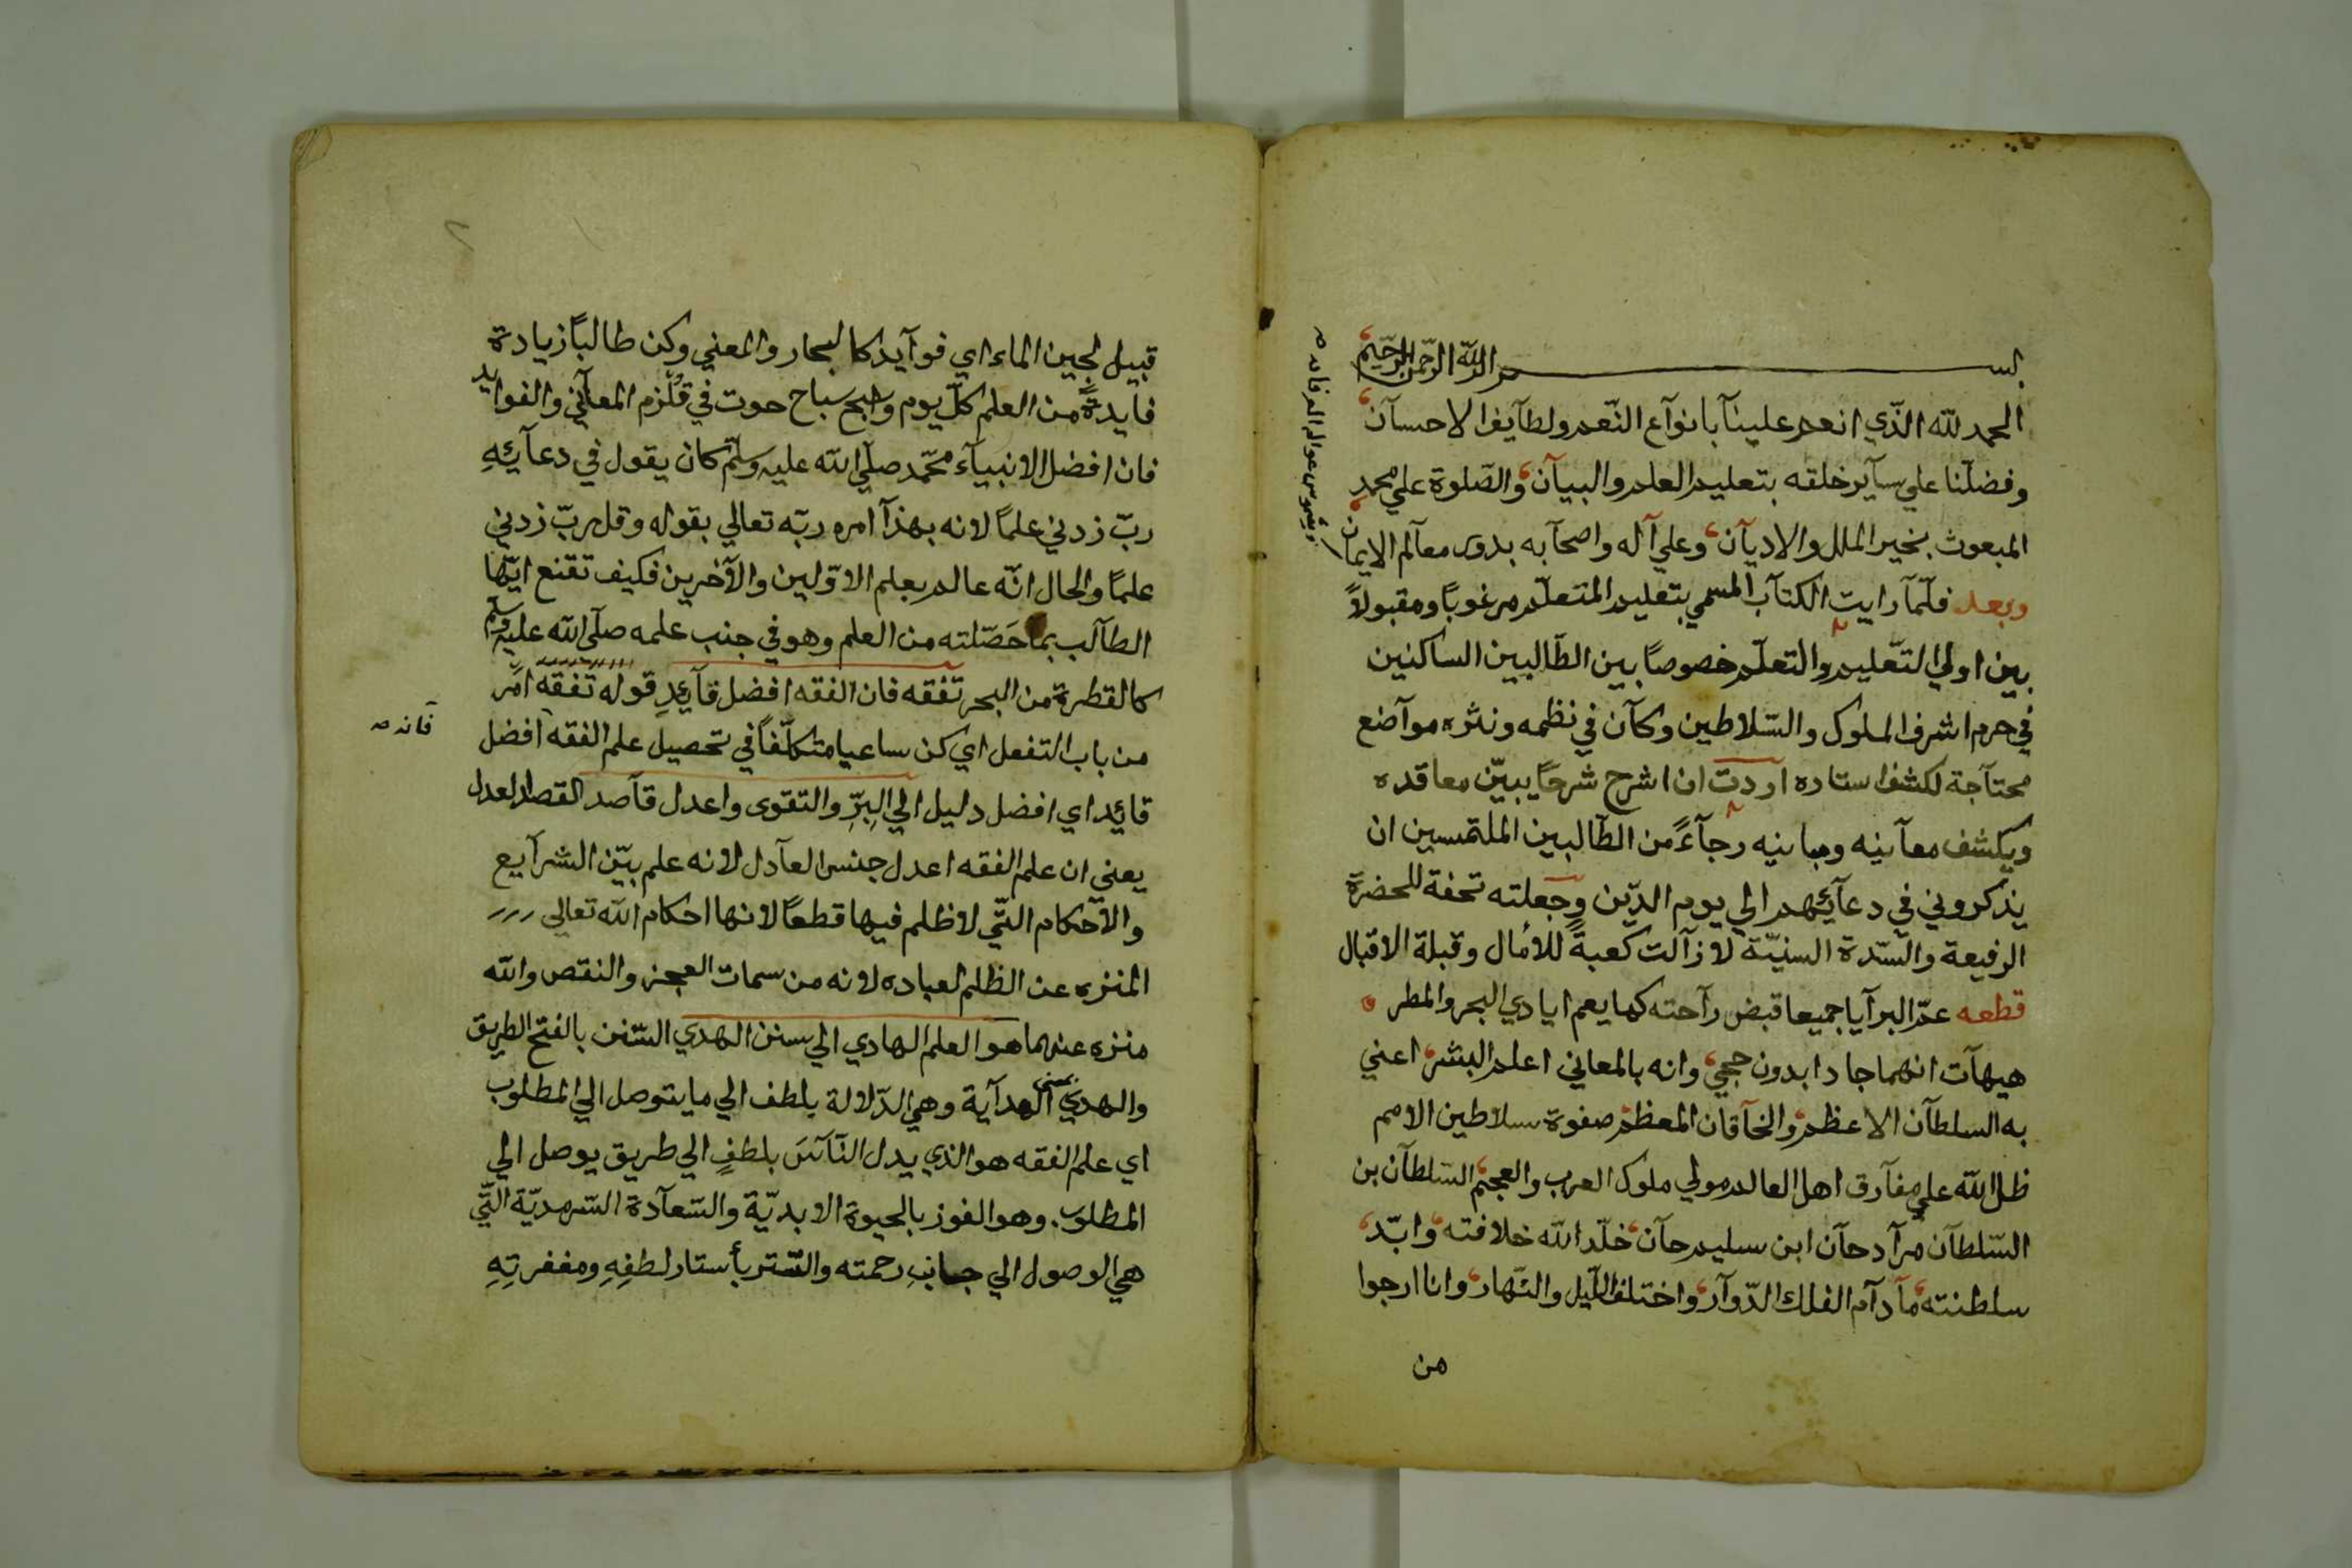 بسم الله الرحمن الرحيم
الحمد لله الذي انعم علينآ بانوآع النعم ولطآيف الاحسآن
وفضلنا علي سآير خلقه بتعليم العلم والبيآن والصلوة علي محمد
المبعوث بخير الملل والاديآن وعلي آله واصحآبه بدور معآلم الايمان
وشموس عوالم العرفان صح
وبعد فلمآ رايت الكتآب المسمي بتعليم المتعلم مرغوبًا ومقبولاً
بين اولي التعليم والتعلم خصوصًا بين الطالبين الساكنين
في حرم اشرف الملوك والسلاطين وكآن في نظمه ونثره موآضع
محتآجة لكشف استاره آردت ان اشرح شرحًا يبيّن معاقده
ويكشف معآنيه ومبانيه رجآءً من الطآلبين الملتمسين ان
يذكروني في دعآئهم الي يوم الدّين وجعلته تحفة للحضرة
الرفيعة والسّدة السنيّة لا زآلت كعبةً للأمال وقبلة الاقبال
قطعه عمّ البرآيا جميعا قبض رآحته كما يعم ايادي البحر والمطر
هيهآت انهما جادا بدون حجي وانه بالمعاني اعلم البشر اعني
به السلطآن الاعظم والخآقان المعظم صفوة سلاطين الامم
ظل الله علي مفآرق اهل العالم مولي ملوك العرب والعجم السلطآن بن
السّلطآن مرآد حآن ابن سليم حآن خلّد الله خلافته وابّد
سلطنته مآ دآم الفلك الدّوآر واختلف اللّيل والنّهار وانا ارجوا
من
قبيل لجين الماء اي فوآيد كالبحار والمعني وكن طالبًا زيادة
فايدةً من العلم كلّ يوم واسبح سباح حوت في قلزم المعآني والفوايد
فان افضل الانبيآء محمّد صلّي الله عليه وسلّم كان يقول في دعآئِهِ
ربّ زدني علمًا لانه بهذآ امره ربّه تعالي بقوله وقل ربّ زدني
علمًا والحال انّه عالم بعلم الاوّلين والآخرين فكيف تقنع ايّها
الطآلب بما حَصّلته من العلم وهو في جنب علمه صلّي الله عليه وسلّم
كالقطرة من البحر تفقه فان الفقه افضل قآئدٍ قوله تفقه امر
من باب التفعل اي كن ساعيا متكلّفًا في تحصيل علم الفقه فانه صح افضل
قائد اي افضل دليل الي البِرِّ والتقوى واعدل قآصد القصد العدل
يعني ان علم الفقه اعدل جنس العآدل لانه علم بيّن الشرآيع
والآحكام التّي لا ظلم فيها قطعًا لانها احكام الله تعالي
المنزه عن الظلم لعباده لانه من سمات العجز والنقص والله
منزه عنهما هو العلم الهادي الي سنن الهدي السّنن بالفتح الطريق
والهدي بمعنى الهدآية وهي الدّلالة بلطف الي ما يتوصل الي المطلوب
اي علم الفقه هو الذي يدل النّآسَ بلطفٍ الي طريق يوصل الي
المطلوب وهو الفوز بالحيوة الابديّة والسّعآدة السّرمديّة التّي
هي الوصول الي جانبِ رحمته والتّستر بأستار لطفِهِ ومغفرتِهِ